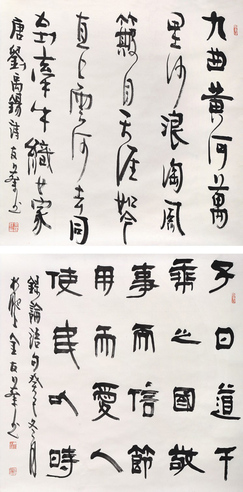 九曲黃河萬
里沙浪淘風
簸自天涯如今
直上雲河去同
到牽牛織女家
唐劉禹錫詩
子曰道千
乘之國敬
事而信節
用而愛人
使民以時
錄論語句